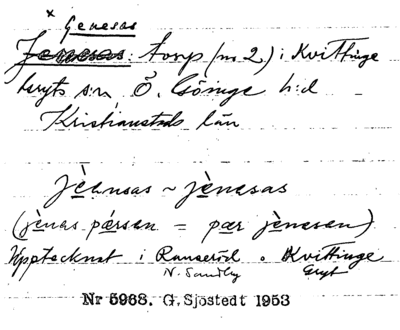 × Genesas
Jenesas: torp (nr 2) i Kvittinge
Gryts s:n, Ö. Göinge h:d
Kristianstads län
jèensas ~ jènesas
(jènas pǽrsen = pær jènesen)
Upptecknat i Ranseröd o Kvittinge
N. Sandby Gryt
Nr 5963. G. Sjöstedt 1953